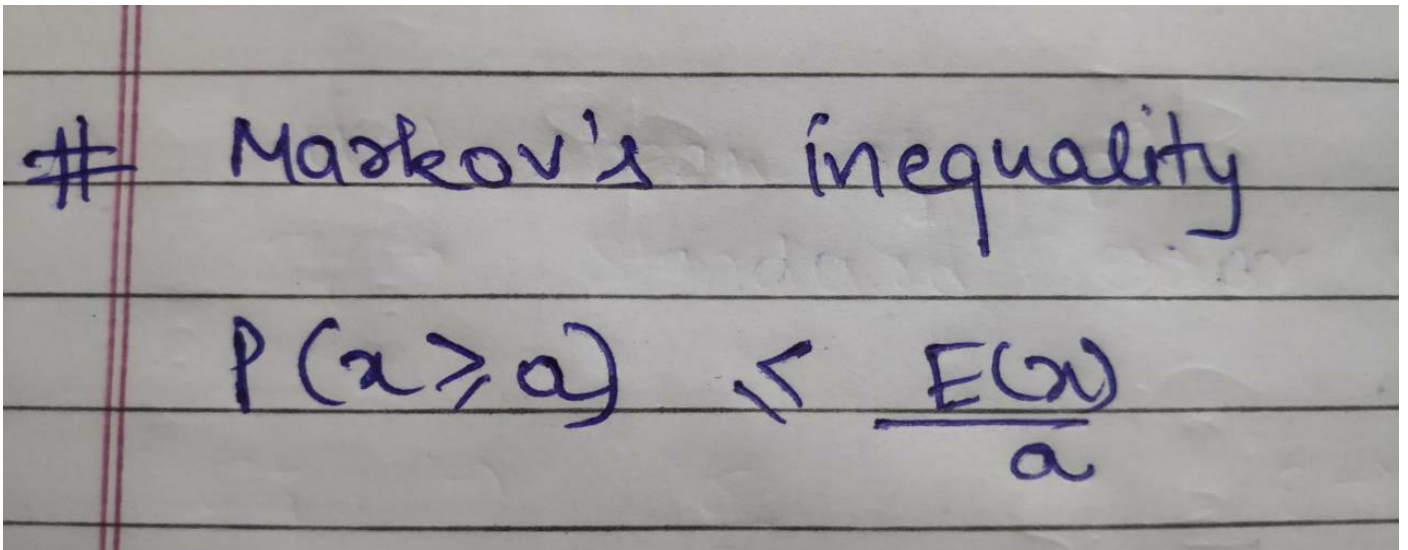 # Markov's inequality
P(x ≥ a) ≤ E(x)/a